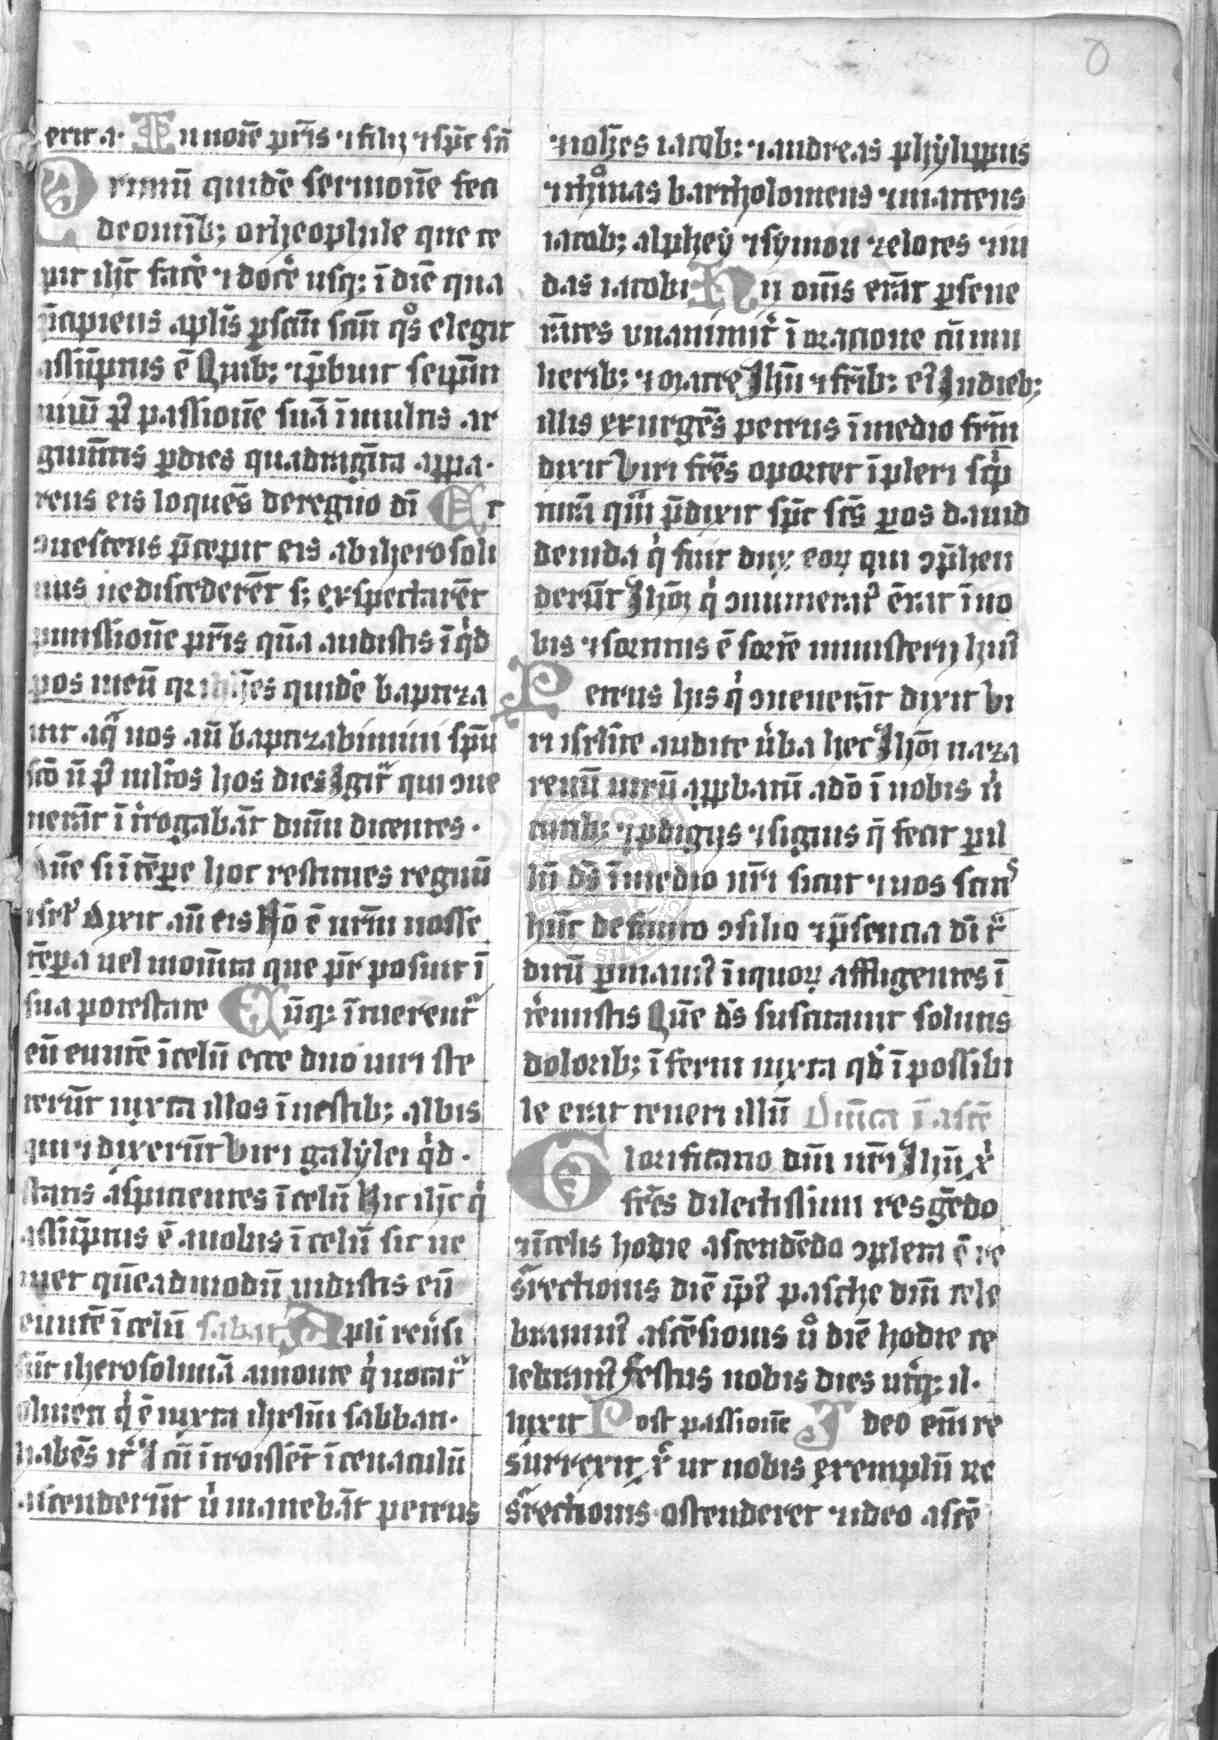 erit a. In noīe pr̄is ⁊ filij ⁊ sp̄c sc̄i
Primū quidē sermonē feci
de omībꝫ o theophyle que ce
pit ih̄c facẽ ⁊ docẽ usqꝫ ī diē qua
p̄cipiens aplīs p sc̄m sc̄m q̊s elegit
assūptus ē Quibꝫ ⁊ p̄buit seip̄m
uiuū p̄ passionē suā ī multis ar
gumētis p dies quadragīta appa
rens eis loquēs de regno dī Et
ꝯuescens p̄cepit eis ab iherosoli
mis ne discederēt sꝫ exspectarēt
pmissionē pr̄is quā audistis īqͥd
pos meū qꝛ ioh̄es quidē baptiza
uit aq̄ uos aū baptizabimini sp̄u
sc̄o n̄ p̄ mltōs hos dies Igiťͬ qui ꝯue
nerāt īͥtrogabāt eum dicentes.
Dn̄e si ī tēpe hoc restitues regnū
isrl̓ Dixit aū eis Nō ē ur̄m nosse
tēpa uel momīta que pr̄ posuit ī
sua potestate Cūqꝫ ītuerentͬ
eū euntē ī celū ecce duo uiri ste
terūt iuxta illos ī uestibꝫ albis
qui ⁊ dixerūt Viri galylei qͥd
statis aspicientes ī celū Hic ih̄c qͥ
assūptus ē a uobis ī celū sic ue
niet quēadmodū uidistis eū
euntē ī celū sabat Apl̄i reu̓si
sūt iherosolimā a monte qͥ uocatͬ
oliueti qͥ ē iuxta ihrl̄m sabbati
habēs itͬ ⁊ cū ītroissēt ī cenaculū
ascenderūt u̓ manebāt petrus
⁊ ioh̄es iacobꝫ ⁊ andreas phylippus
⁊ thomas bartholomeus ⁊ matteus
iacobꝫ alphey ⁊ symon zelotes ⁊ iu
das iacobi Hij om̄s erāt p seue
rātes vnanimiť ī oratione cū mu
lieribꝫ ⁊ matre Ihū ⁊ fr̄ibꝫ eꝰ In diebꝫ
illis exurgēs petrus ī medio fr̄m
dixit Viri fr̄es oportet īpleri scͥp
turā quā p̄dixit sp̄c sc̄s p os dauid
de iuda qͥ fuit dux eoꝝ qui ꝯp̄hen
derūt Ihm̄ qͥ ꝯnumeratꝰ erat ī no
bis ⁊ sortitus ē sortē ministerij huiꝰ
Petrus his qͥ ꝯuenerāt dixit Vi
ri isrl̄ite audite u̓ba hec Ihm̄ naza
renū uirū appbatū a dō ī uobis u̓
tutibꝫ ⁊ pdigijs ⁊ signis q̄ fecit p il
lū ds̄ ī medio ur̄i sicut ⁊ uos scitis
hūc definito ꝯsilio ⁊ p̄sencia dī tͬ
ditū p manꝰ īiquoꝝ affligentes ī
t̓emistis Quē ds̄ suscitauit solutis
doloribꝫ īferni iuxta qd̓ īpossibi
le erat teneri illū Dn̄ica ī ascē
Glorificatio dn̄i nr̄i Ihū xͥ
fr̄es dilectissimi res gēdo
⁊ ī celis hodie ascendēdo ꝯpleta ē re
sr̄rectionis diē ip̄iꝰ pasche dn̄i cele
brauimꝰ ascēsionis u̓o diē hodie ce
lebramꝰ Festus nobis dies utͬqꝫ il
luxit Post passionē I deo enī re
surrexit tͬ ut nobis exemplū re
sr̄rectionis ostenderet ⁊ ideo ascē